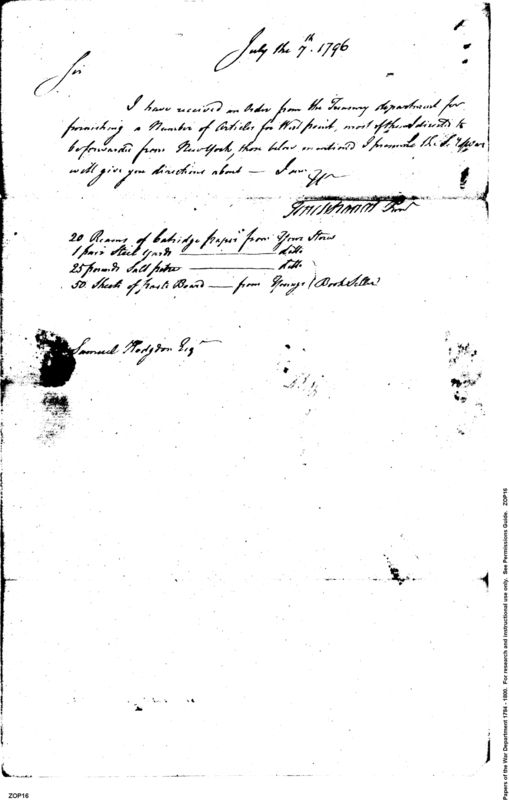 July the 7th. 1796
Sir
I have received an Order from the Treasury department for
furnishing a Number of Articles for West point, most of them directed to
be forwarded from New York, those below mentioned I presume the S. of War
will give you directions about — I am
20 Reams of Catridge paper from Your Store
1 pair Steel yards ditto
25 pounds Salt petre ditto
50 Sheets of paste Board — from Youngs (Book Seller
Samuel Hodgdon Esqr
ZOP16
Papers of the War Department 1784 - 1800. For research and instructional use only. See Permissions Guide. ZOP16